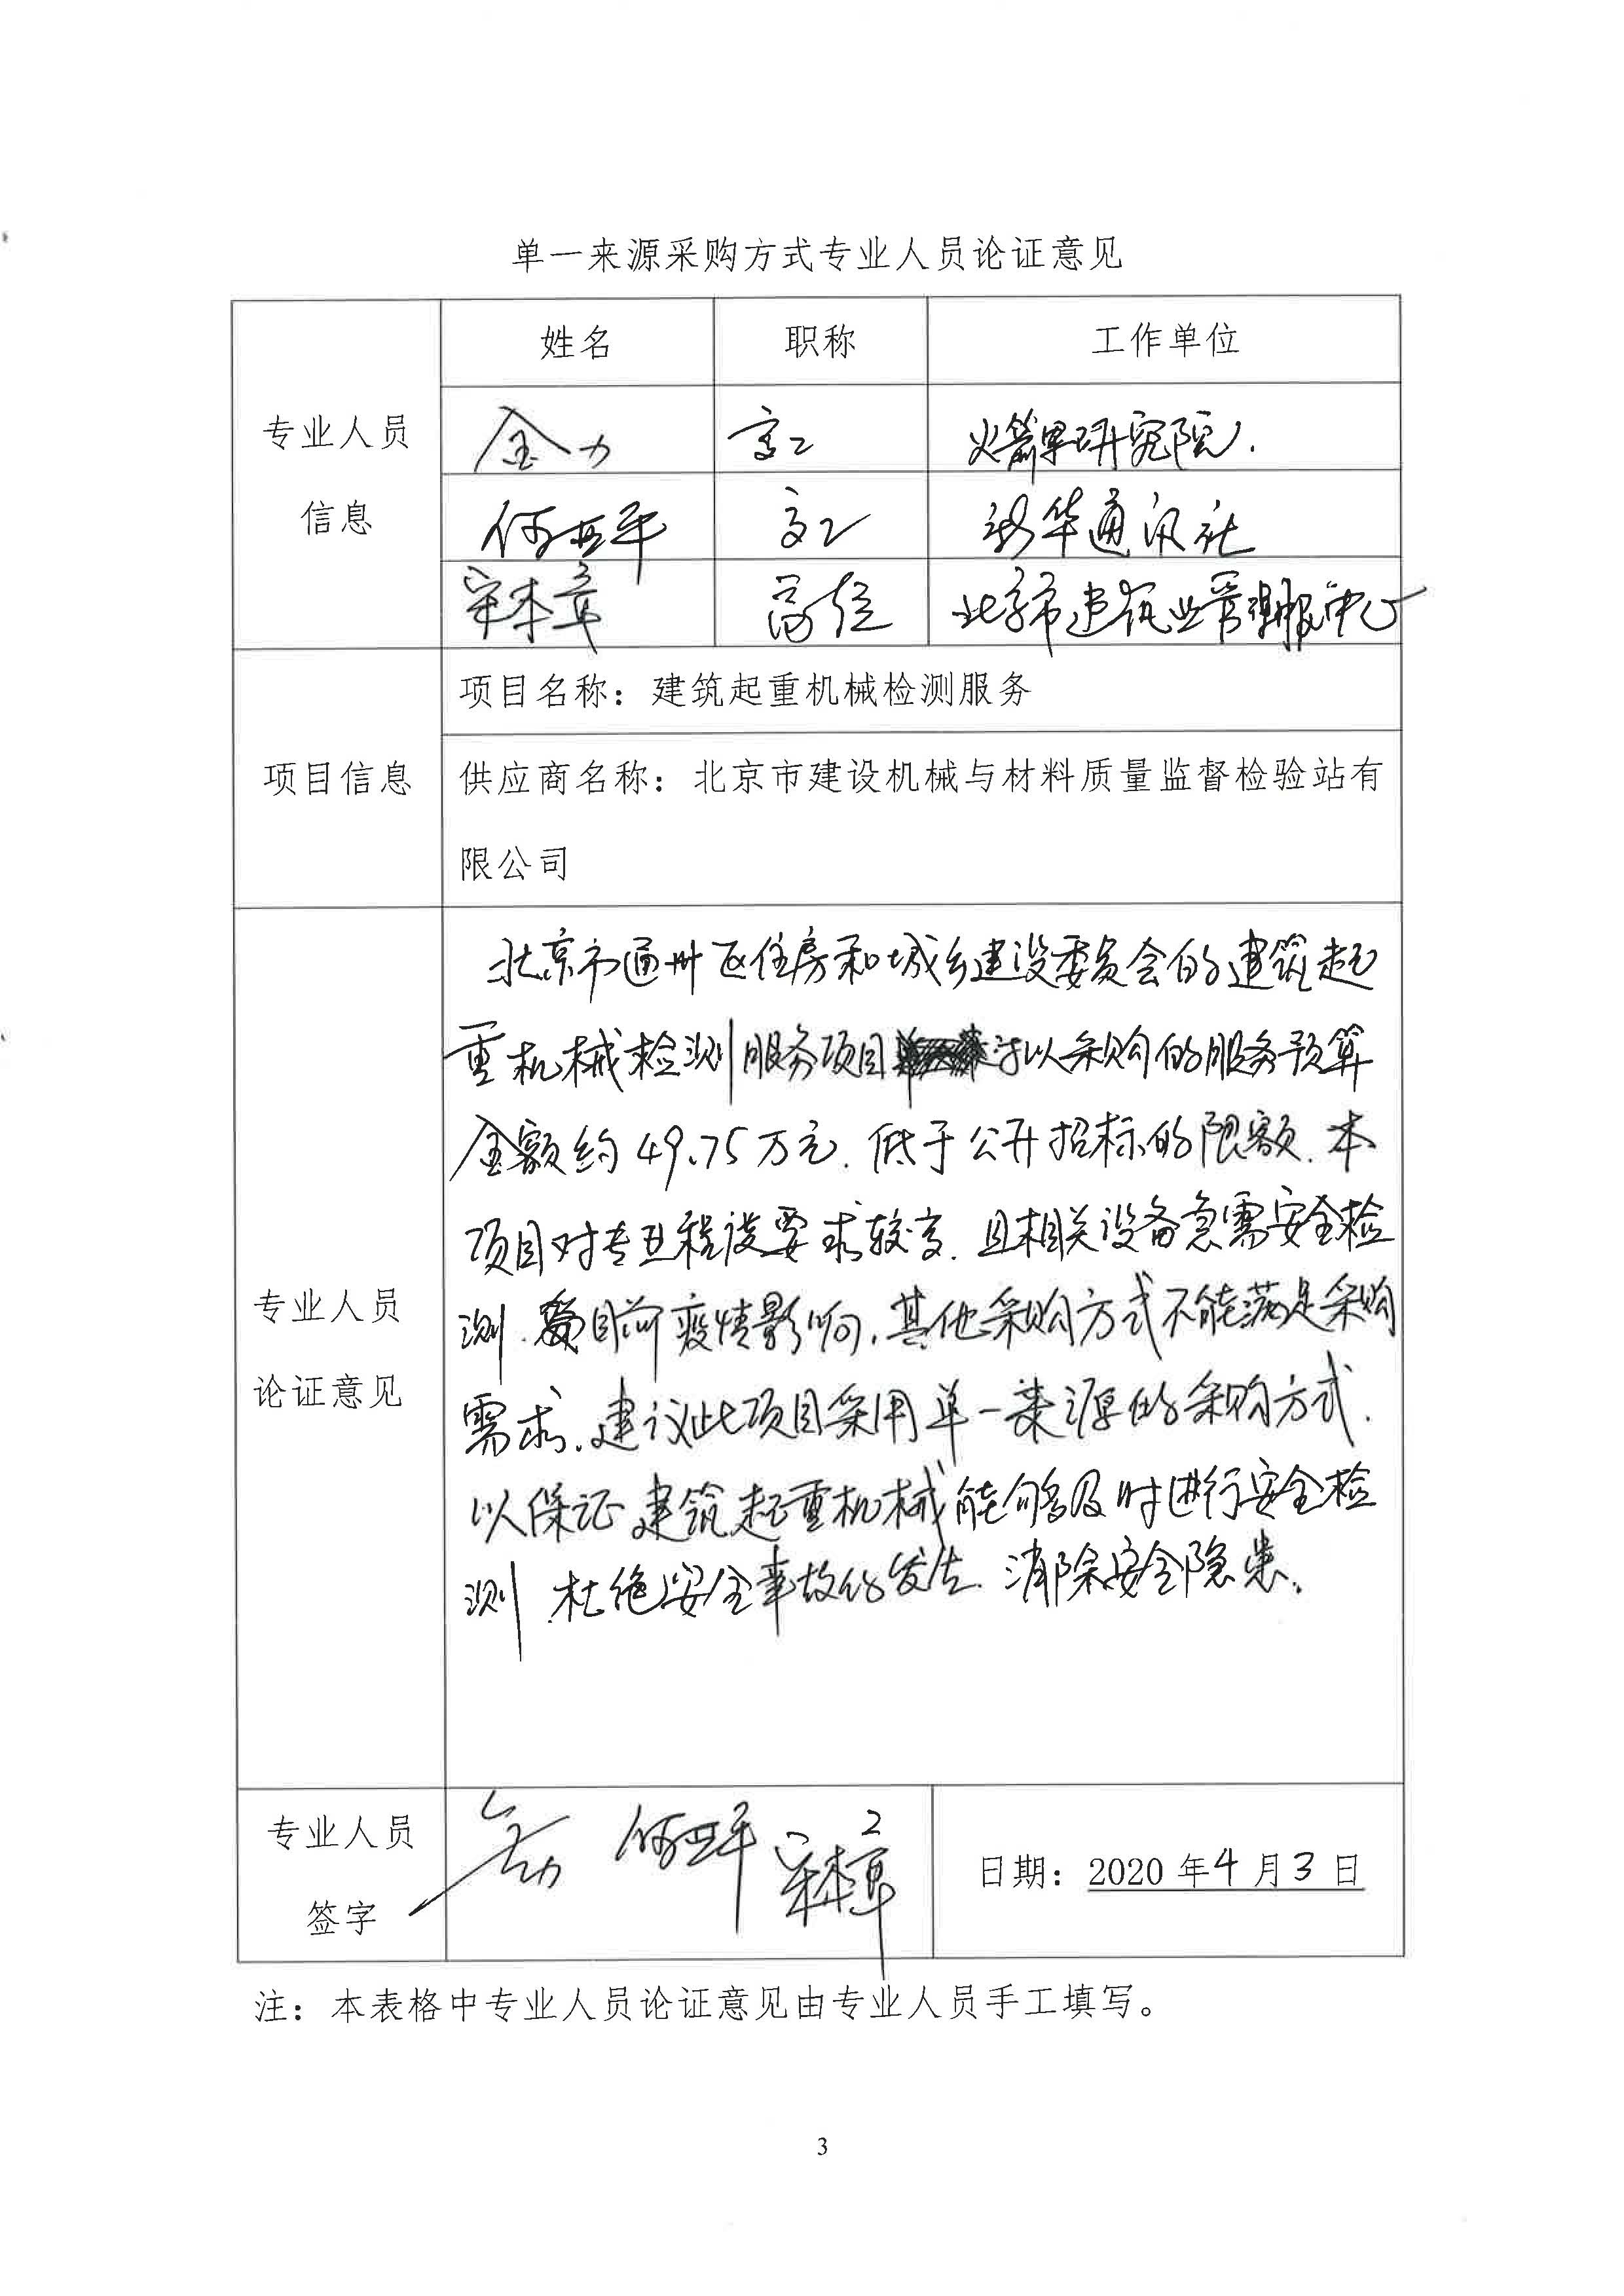 单一来源采购方式专业人员论证意见
专业人员
信息
姓名 职称 工作单位
金力 高工 火箭军研究院.
何亚平 高工 新华通讯社
宋本章 高级 北京市建筑业管理服中心
项目信息
项目名称：建筑起重机械检测服务
供应商名称：北京市建设机械与材料质量监督检验站有
限公司
专业人员
论证意见
北京市通州区住房和城乡建设委员会的建筑起
重机械检测服务项目 以采购的服务预算
金额约49.75万元.低于公开招标的限额.本
项目对专业程度要求较高.且相关设备急需安全检
测. 目前疫情影响,其他采购方式不能满足采购
需求.建议此项目采用单一来源的采购方式.
以保证建筑起重机械能够及时进行安全检
测.杜绝安全事故的发生.消除安全隐患。
专业人员
签字
金力 何亚平 宋本章
日期：2020年4月3日
注：本表格中专业人员论证意见由专业人员手工填写。
3